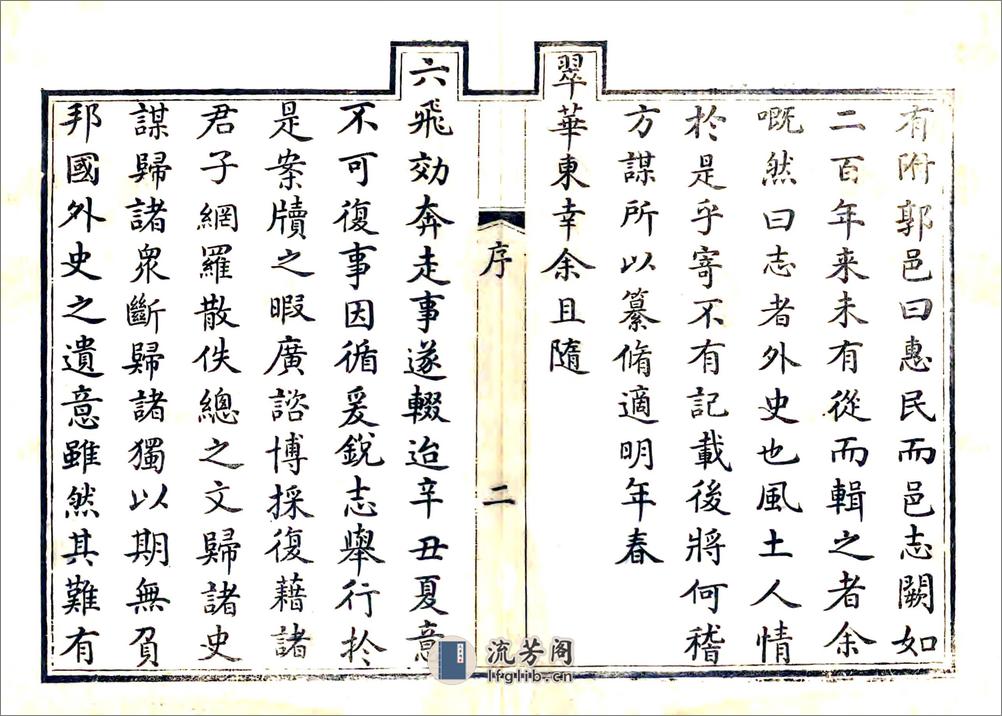 有附郭邑曰惠民而邑志闕如
二百年来未有從而輯之者余
嘅然曰志者外史也風土人情
於是乎寄不有記載後將何稽
方謀所以纂脩適明年春
翠華東幸余且隨
序 二
六飛効奔走事遂輟迨辛丑夏意
不可復事因循爰銳志舉行扵
是案牘之暇廣諮博採復藉諸
君子網羅散佚總之文歸諸史
謀歸諸衆斷歸諸獨以期無負
邦國外史之遺意雖然其難有
流芳阁
lfglib.cn